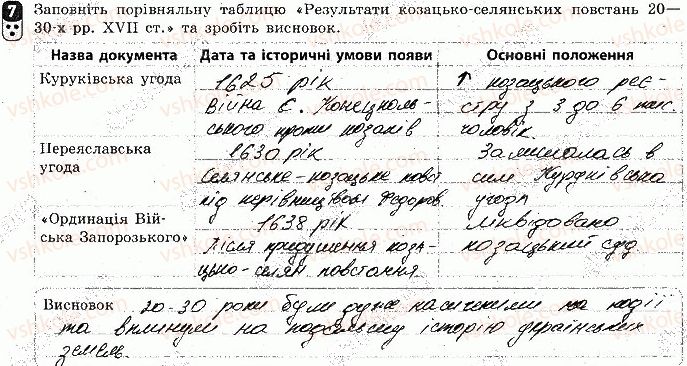 7 Заповніть порівняльну таблицю «Результати козацько-селянських повстань 20—
30-х рр. XVII ст.» та зробіть висновок.
Назва документа Дата та історичні умови появи Основні положення
Куруківська угода 1625 рік ↑ козацького реє-
Війна Є. Конецполь- стру з 3 до 6 тис.
ського проти козаків чоловік.
Переяславська 1630 рік Залишалась в
угода Селянське-козацьке повст силі Куруківська
під керівництвом Федоров угода
«Ординація Вій- 1638 рік ліквідовано
ська Запорозького» Після придушення коза- козацький суд
цько-селян повстання
Висновок 20-30 роки були дуже насиченими на події
та вплинули на подальшу історію українських
земель.
vshkole.com